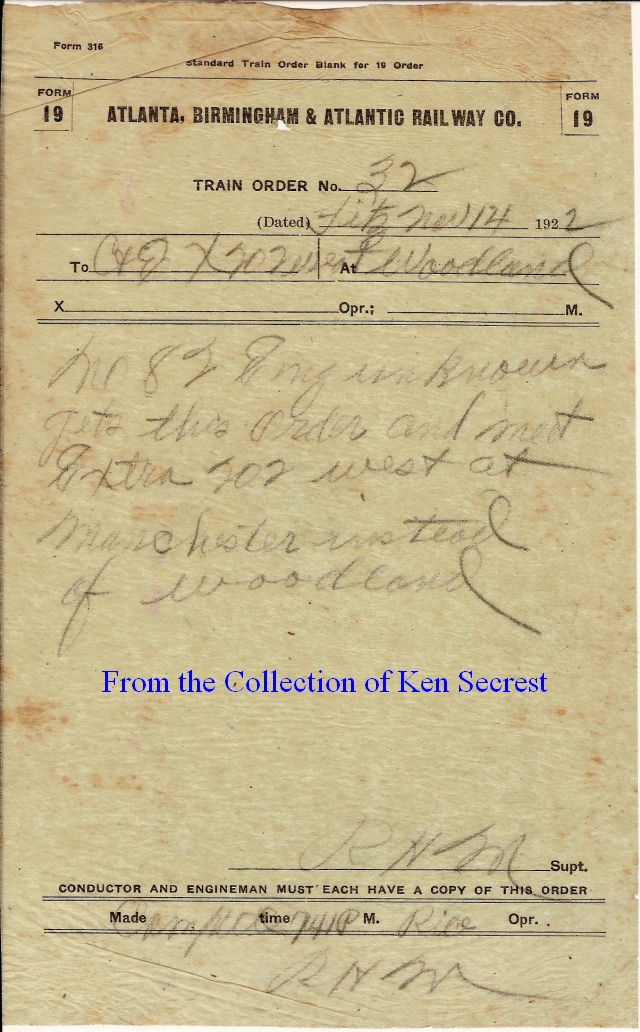 Form 316
Standard Train Order Blank for 19 Order
FORM 19
ATLANTA, BIRMINGHAM & ATLANTIC RAILWAY CO.
FORM 19
TRAIN ORDER No. 32
(Dated) Fitz Nov 14 1922
To C&E X 202 west At Woodland
X Opr.; M.
No 82 Eng unknown
gets this order and meet
Extra 202 west at
Manchester instead
of Woodland
From the Collection of Ken Secrest
R H M Supt.
CONDUCTOR AND ENGINEMAN MUST EACH HAVE A COPY OF THIS ORDER
Made time 741P M. Opr. .
R H M